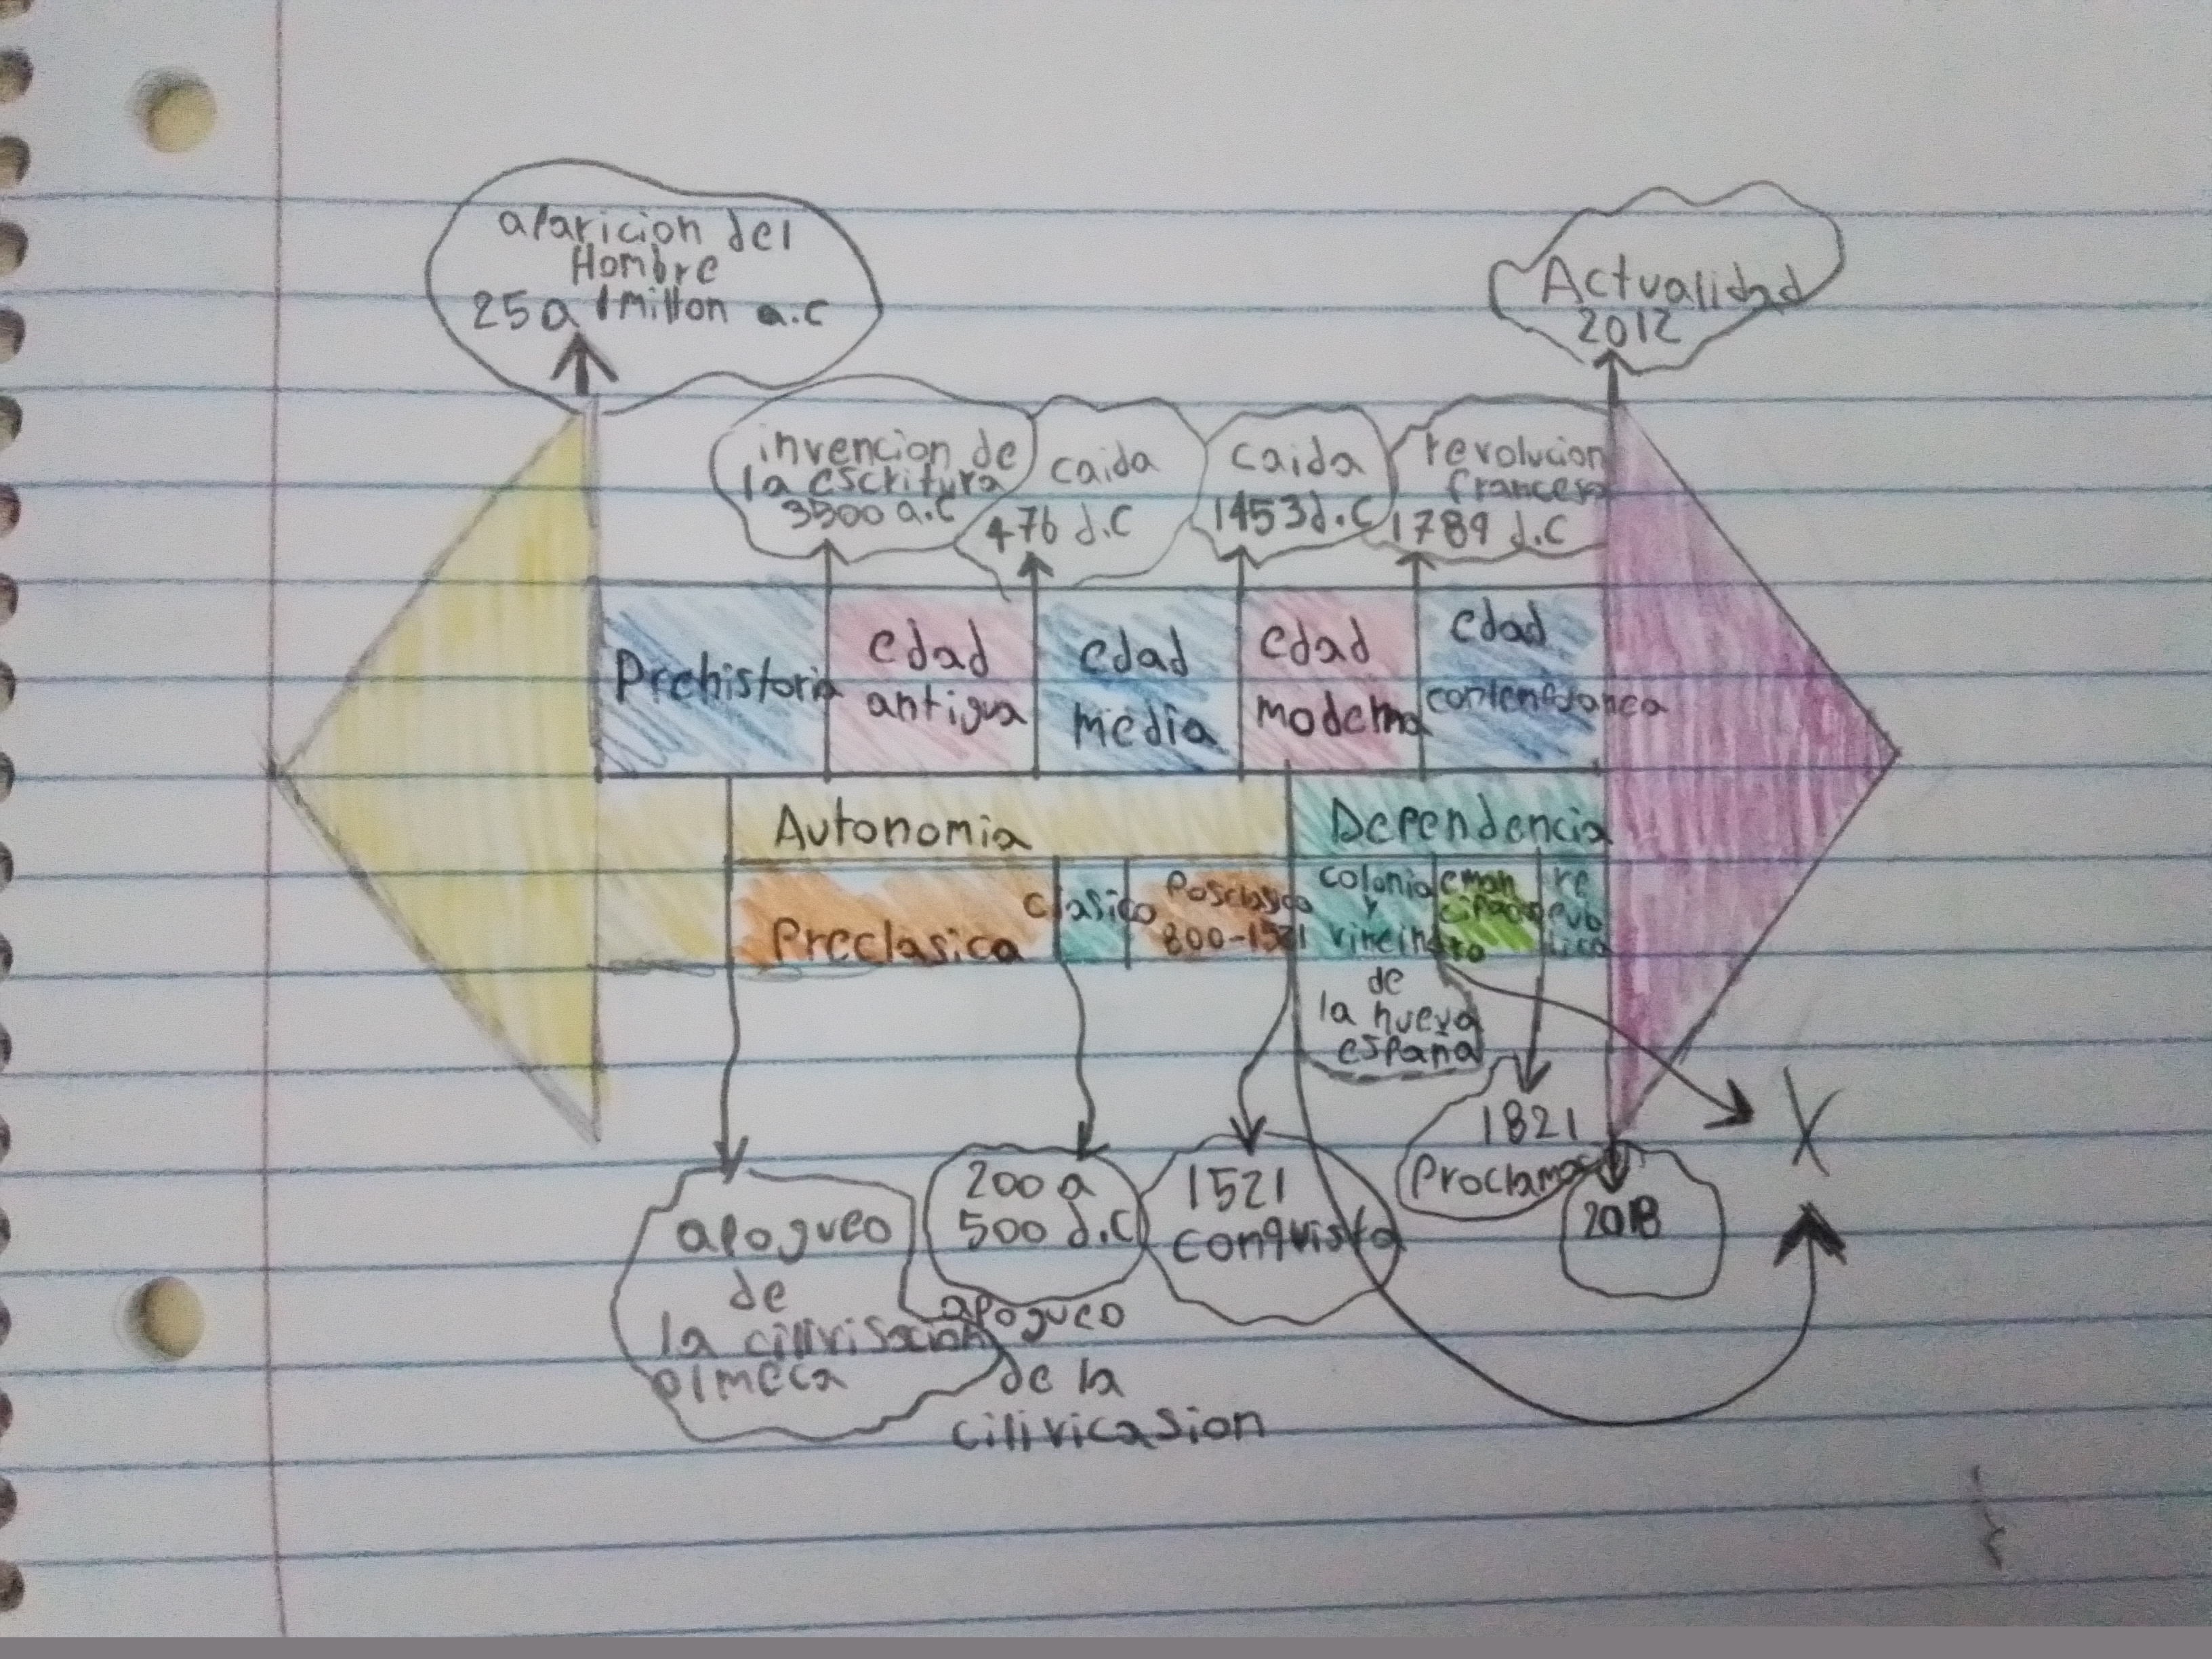 aparicion del
Hombre
25 a 1 Millon a.c
Actualidad
2012
invencion de
la escritura
3500 a.c
caida
476 d.c
caida
1453 d.c
revolucion
francesa
1789 d.c
Prehistoria
edad
antigua
edad
media
edad
moderna
edad
Autonomia
Dependencia
Preclasica
clasico
Posclasico
800-1521
colonia
y
de
la nueva
españa
eman
cipacion
re
pub
lica
apogueo
de
olmeca
200 a
500 d.c
apogueo
de la
cilivicasion
1521
conquista
1821
Proclamas
2018
X